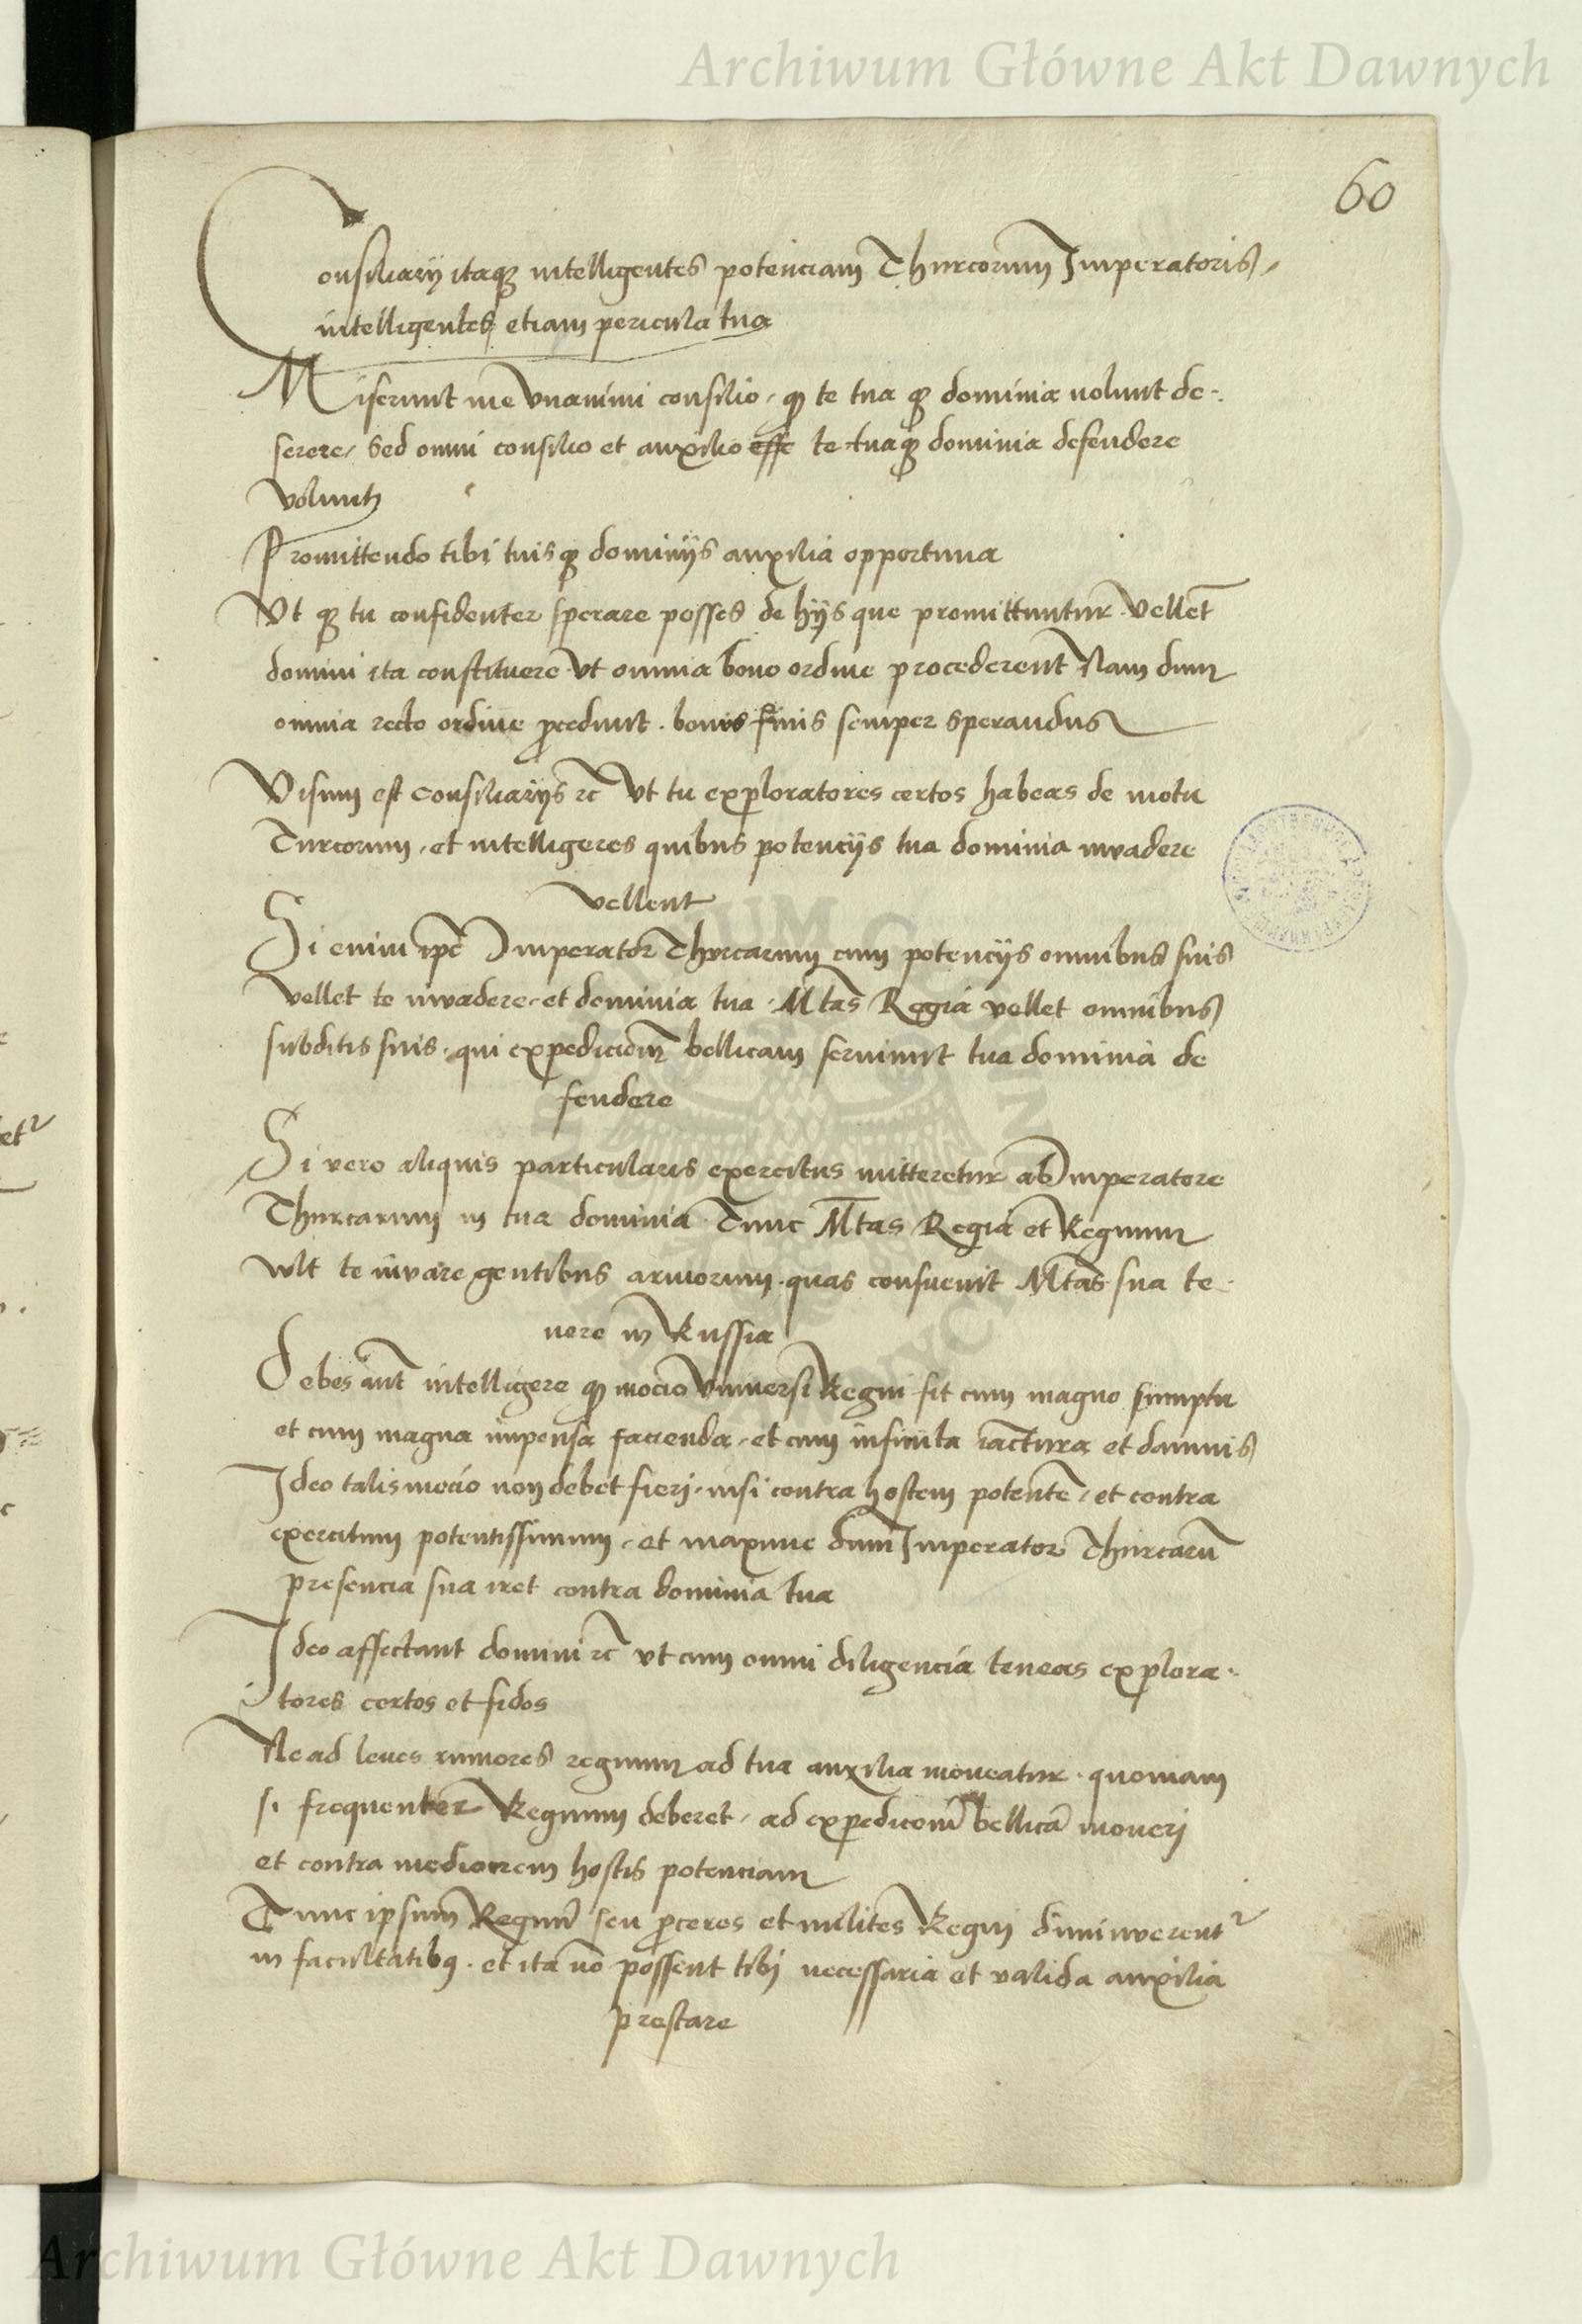 Archiwum Główne Akt Dawnych
60
Consiliarÿ itaqꝫ intelligentes potenciam Thurcorum Imperatoris
intelligentes etiam pericula tua
Miserunt me vnanimi consilio, qꝫ te tua qꝫ dominia nolunt de-
serere, Sed omni consilio et auxilio esse te tuaqꝫ dominia defendere
volunt
Promittendo tibi tuis qꝫ dominÿs auxilia opportuna
Vt qꝫ tu confidenter sperare posses de hÿs que promittuntur. Vellet̄
domini ita constituere Vt omnia bono ordine procederent Nam dum
omnia recto ordine ꝓcedunt. bonus finis semper sperandus
Visum est Consiliarÿs ꝛc̄ Vt tu exploratores certos habeas de motu
Turcorum, et intelligeres quibus potencÿs tua dominia invadere
vellent
Si enim ip̄e Imperator Thurcarum cum potencÿs omnibus suis
vellet te invadere, et dominia tua. Mtas Regia vellet omnibus
subditis suis, qui expedicio᷑m bellicam seruiunt tua dominia de
fendere
Si vero aliquis particularis exercitus mitteretur ab Imperatore
Thurcarum in tua dominia. Tunc Mtas Regia et Regnum
wlt te iuvare gentibus armorum. quas consueuit Mtas sua te-
nere in Russia
Debes aūt intelligere qꝫ mocio Vniuersi Regni fit cum magno sumptu
et cum magna impensa facienda, et cum infinita iactura et damnis
Ideo talis mocio non debet fieri, nisi contra hostem potentē, et contra
exercitum potentissimum, et maxime dum Imperator Thurcarū
presencia sua iret contra dominia tua
Ideo affectant domini ꝛc̄ vt cum omni diligencia teneas explora-
tores certos et fidos
Ne ad leues rumores regnum ad tua auxilia moueatur. quoniam
si frequenter Regnum deberet, ad expedicōm bellicā moueri
et contra mediocrem hostis potenciam
Tunc ipsum Regnū seu ꝓceres et milites Regni diminuerent᷑
in facultatibꝯ. et ita nō possent tibi necessaria et valida auxilia
prestare
Archiwum Główne Akt Dawnych